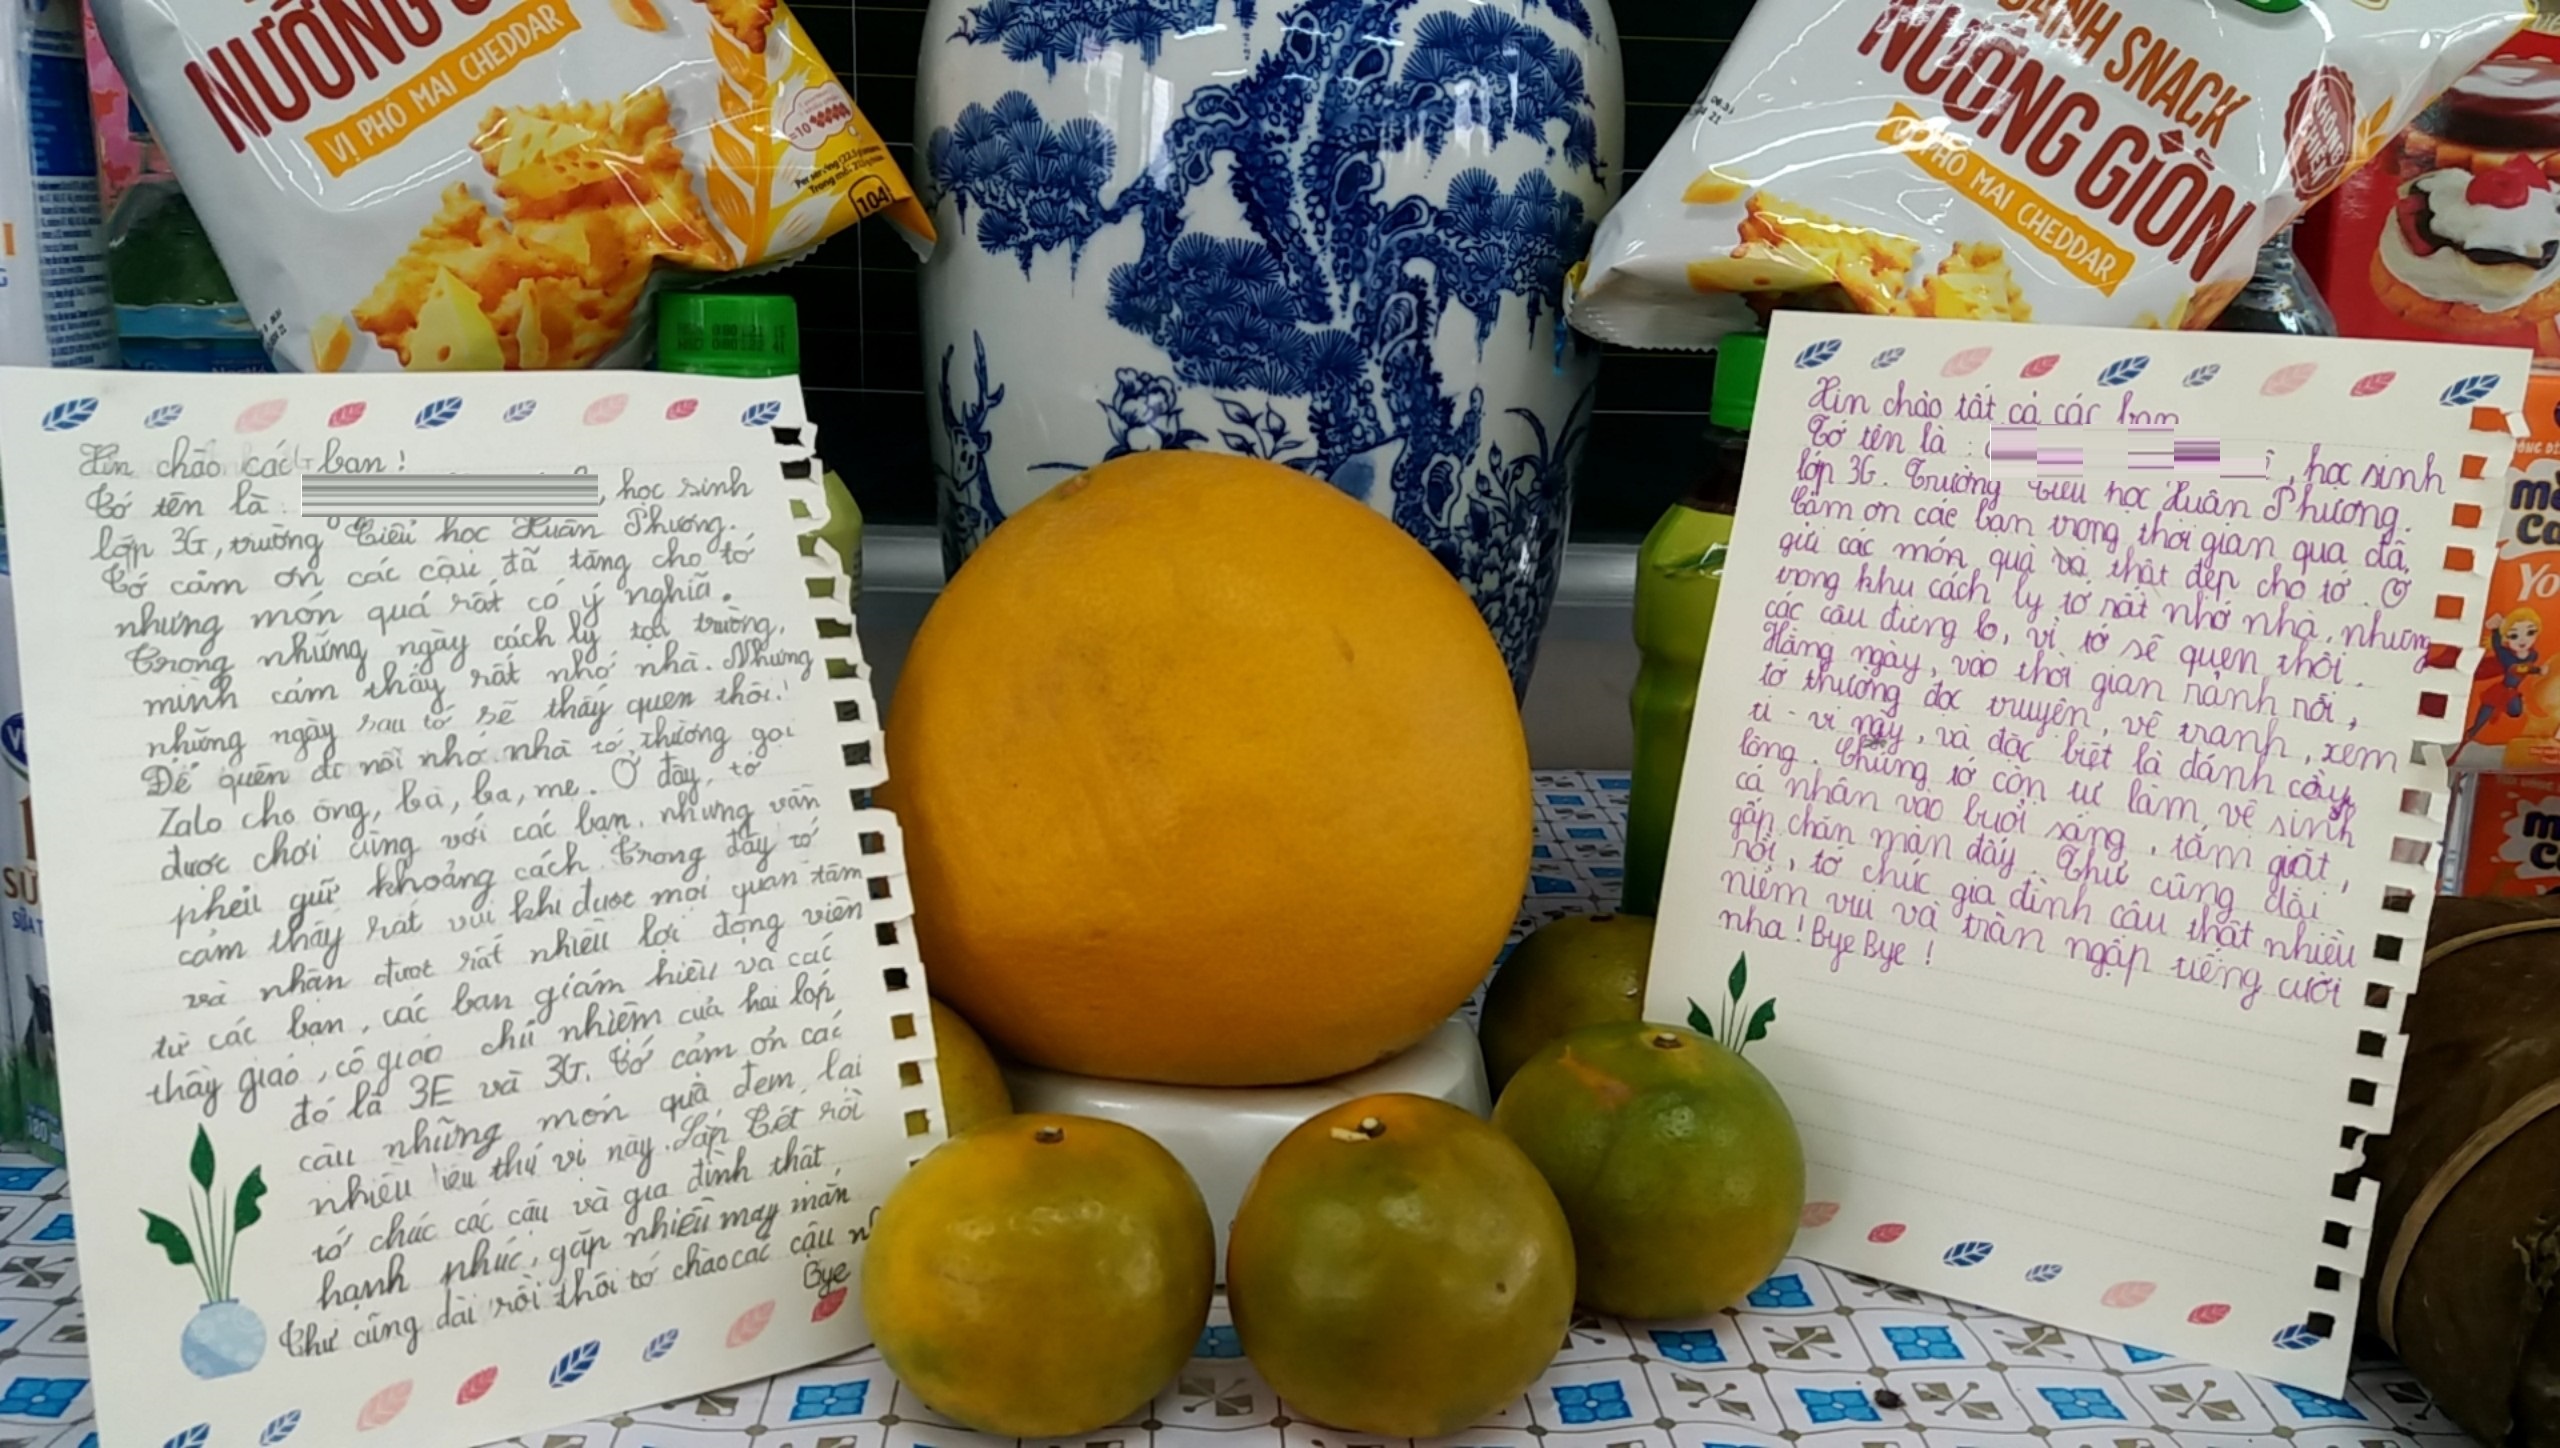 NƯỚNG
VỊ PHÔ MAI CHEDDAR
104
BÁNH SNACK
NƯỚNG GIÒN
VỊ PHÔ MAI CHEDDAR
Xin chào các bạn!
Tớ tên là :
, học sinh
lớp 3G, trường Tiểu học Xuân Phương.
Tớ cảm ơn các cậu đã tăng cho tớ
nhưng món quá rất có ý nghĩã.
Trong những ngày cách ly tại trường,
mình cảm thấy rất nhớ nhà. Nhưng
những ngày sau tớ sẽ thấy quen thôi!
Để quên đi nỗi nhớ nhà tớ thường gọi
Zalo cho ông, bà, ba, mẹ. Ở đây, tớ
được chơi cùng với các bạn, nhưng vẫn
phải giữ khoảng cách. Trong đây tớ
cảm thấy rất vui khi được mọi quan tâm
và nhận được rất nhiều lời động viên
từ các bạn, các ban giám hiệu và các
thầy giáo, cô giáo chủ nhiệm của hai lớp
đó là 3E và 3G. Tớ cảm ơn các
cậu những món quà đem lại
nhiều thú vị này. Sắp Tết rồi
tớ chúc các cậu và gia đình thật
hạnh phúc, gặp nhiều may mắn
Thư cũng dài rồi thôi tớ chào các cậu
Bye
Xin chào tất cả các bạn
Tớ tên là :
, học sinh
lớp 3G. Trường Tiểu học Xuân Phương.
Cảm ơn các bạn trong thời gian qua đã
gửi các món quà và thật đẹp cho tớ. Ở
trong khu cách ly tớ rất nhớ nhà, nhưng
các cậu đừng lo, vì tớ sẽ quen thôi.
Hằng ngày, vào thời gian rảnh rỗi,
tớ thường đọc truyện, vẽ tranh, xem
ti - vi này, và đặc biệt là đánh cầu
lông. Chúng tớ còn tự làm vệ sinh
cá nhân vào buổi sáng, tắm giặt,
gấp chăn màn đấy. Thư cũng dài
rồi, tớ chúc gia đình cậu thật nhiều
niềm vui và tràn ngập tiếng cười
nha! Bye Bye !